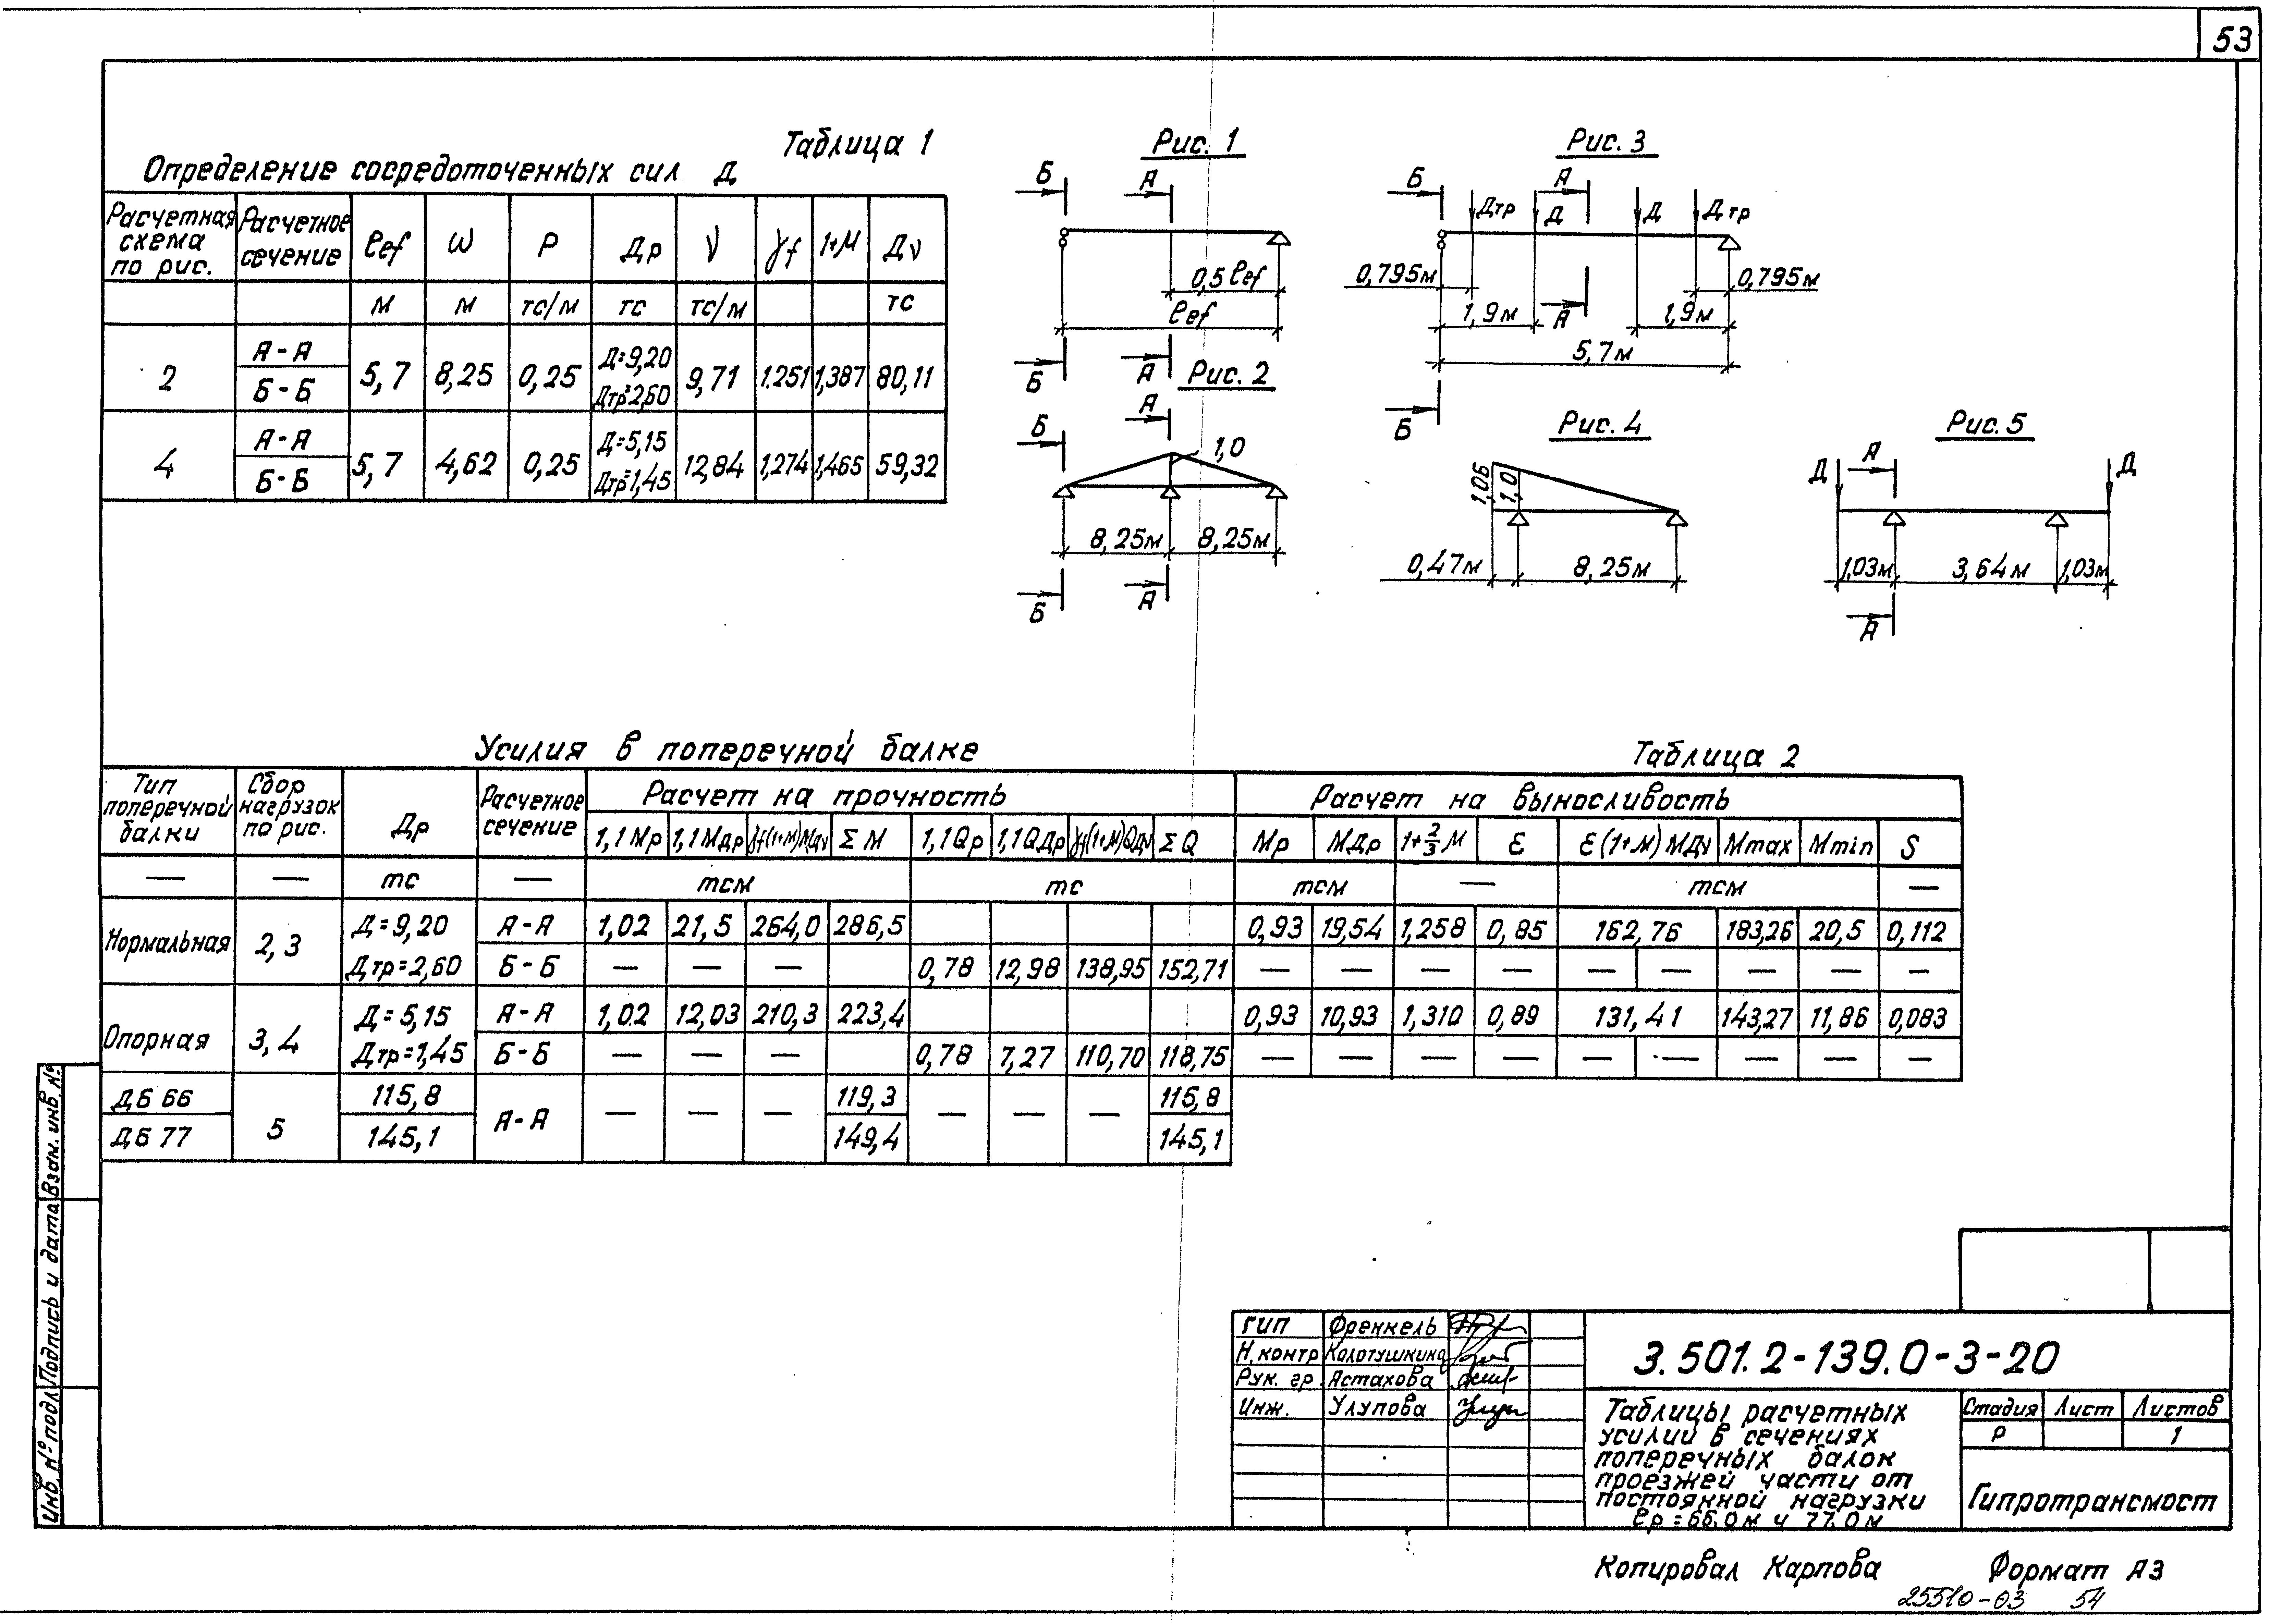 53
Таблица 1
Определение сосредоточенных сил Д
Расчетная схема по рис. | Расчетное сечение | ℓef | ω | P | Др | ν | γf | 1+М | Дν
м | м | тс/м | тс | тс/м | тс
2 | А-А | 5,7 | 8,25 | 0,25 | Д=9,20 | 9,71 | 1.251 | 1,387 | 80,11
Б-Б | Дтр=2,60
4 | А-А | 5,7 | 4,62 | 0,25 | Д=5,15 | 12,84 | 1,274 | 1,465 | 59,32
Б-Б | Дтр=1,45
Рис. 1
Б А
0,5 ℓef
ℓef
Б А
Рис. 2
Б А
1,0
8,25м 8,25м
Б А
Рис. 3
Б А
Дтр Д Д Дтр
0,795м 0,795м
1,9м А 1,9м
5,7м
Б
Рис. 4
1,06 1,0
0,47м 8,25м
Рис. 5
Д А Д
1,03м 3,64м 1,03м
А
Усилия в поперечной балке
Таблица 2
Тип поперечной балки | Сбор нагрузок по рис. | Др | Расчетное сечение | Расчет на прочность | Расчет на выносливость
1,1Мр | 1,1МДр | γf(1+М)МДν | ΣМ | 1,1Qр | 1,1QДр | γf(1+М)QДν | ΣQ | Мр | МДр | 1+2/3М | ε | ε(1+М)МДν | Мmax | Мmin | S
— | — | тс | — | тсм | тс | тсм | — | тсм | —
Нормальная | 2,3 | Д=9,20 | А-А | 1,02 | 21,5 | 264,0 | 286,5 | 0,93 | 19,54 | 1,258 | 0,85 | 162,76 | 183,26 | 20,5 | 0,112
Дтр=2,60 | Б-Б | — | — | — | 0,78 | 12,98 | 138,95 | 152,71 | — | — | — | — | — | — | — | — | —
Опорная | 3,4 | Д=5,15 | А-А | 1,02 | 12,03 | 210,3 | 223,4 | 0,93 | 10,93 | 1,310 | 0,89 | 131,41 | 143,27 | 11,86 | 0,083
Дтр=1,45 | Б-Б | — | — | — | 0,78 | 7,27 | 110,70 | 118,75 | — | — | — | — | — | — | — | — | —
ДБ 66 | 5 | 115,8 | А-А | — | — | — | 119,3 | — | — | — | 115,8
ДБ 77 | 145,1 | 149,4 | 145,1
Инв. № подл. Подпись и дата Взам. инв. №
ГИП Френкель
Н. контр Колотушкина
Рук. гр. Астахова
Инж. Улупова
3.501.2-139.0-3-20
Таблицы расчетных
усилий в сечениях
поперечных балок
проезжей части от
постоянной нагрузки
ℓр = 66,0м и 77,0м
Стадия Лист Листов
Р 1
Гипротрансмост
Копировал Карпова Формат А3
25510-03 54